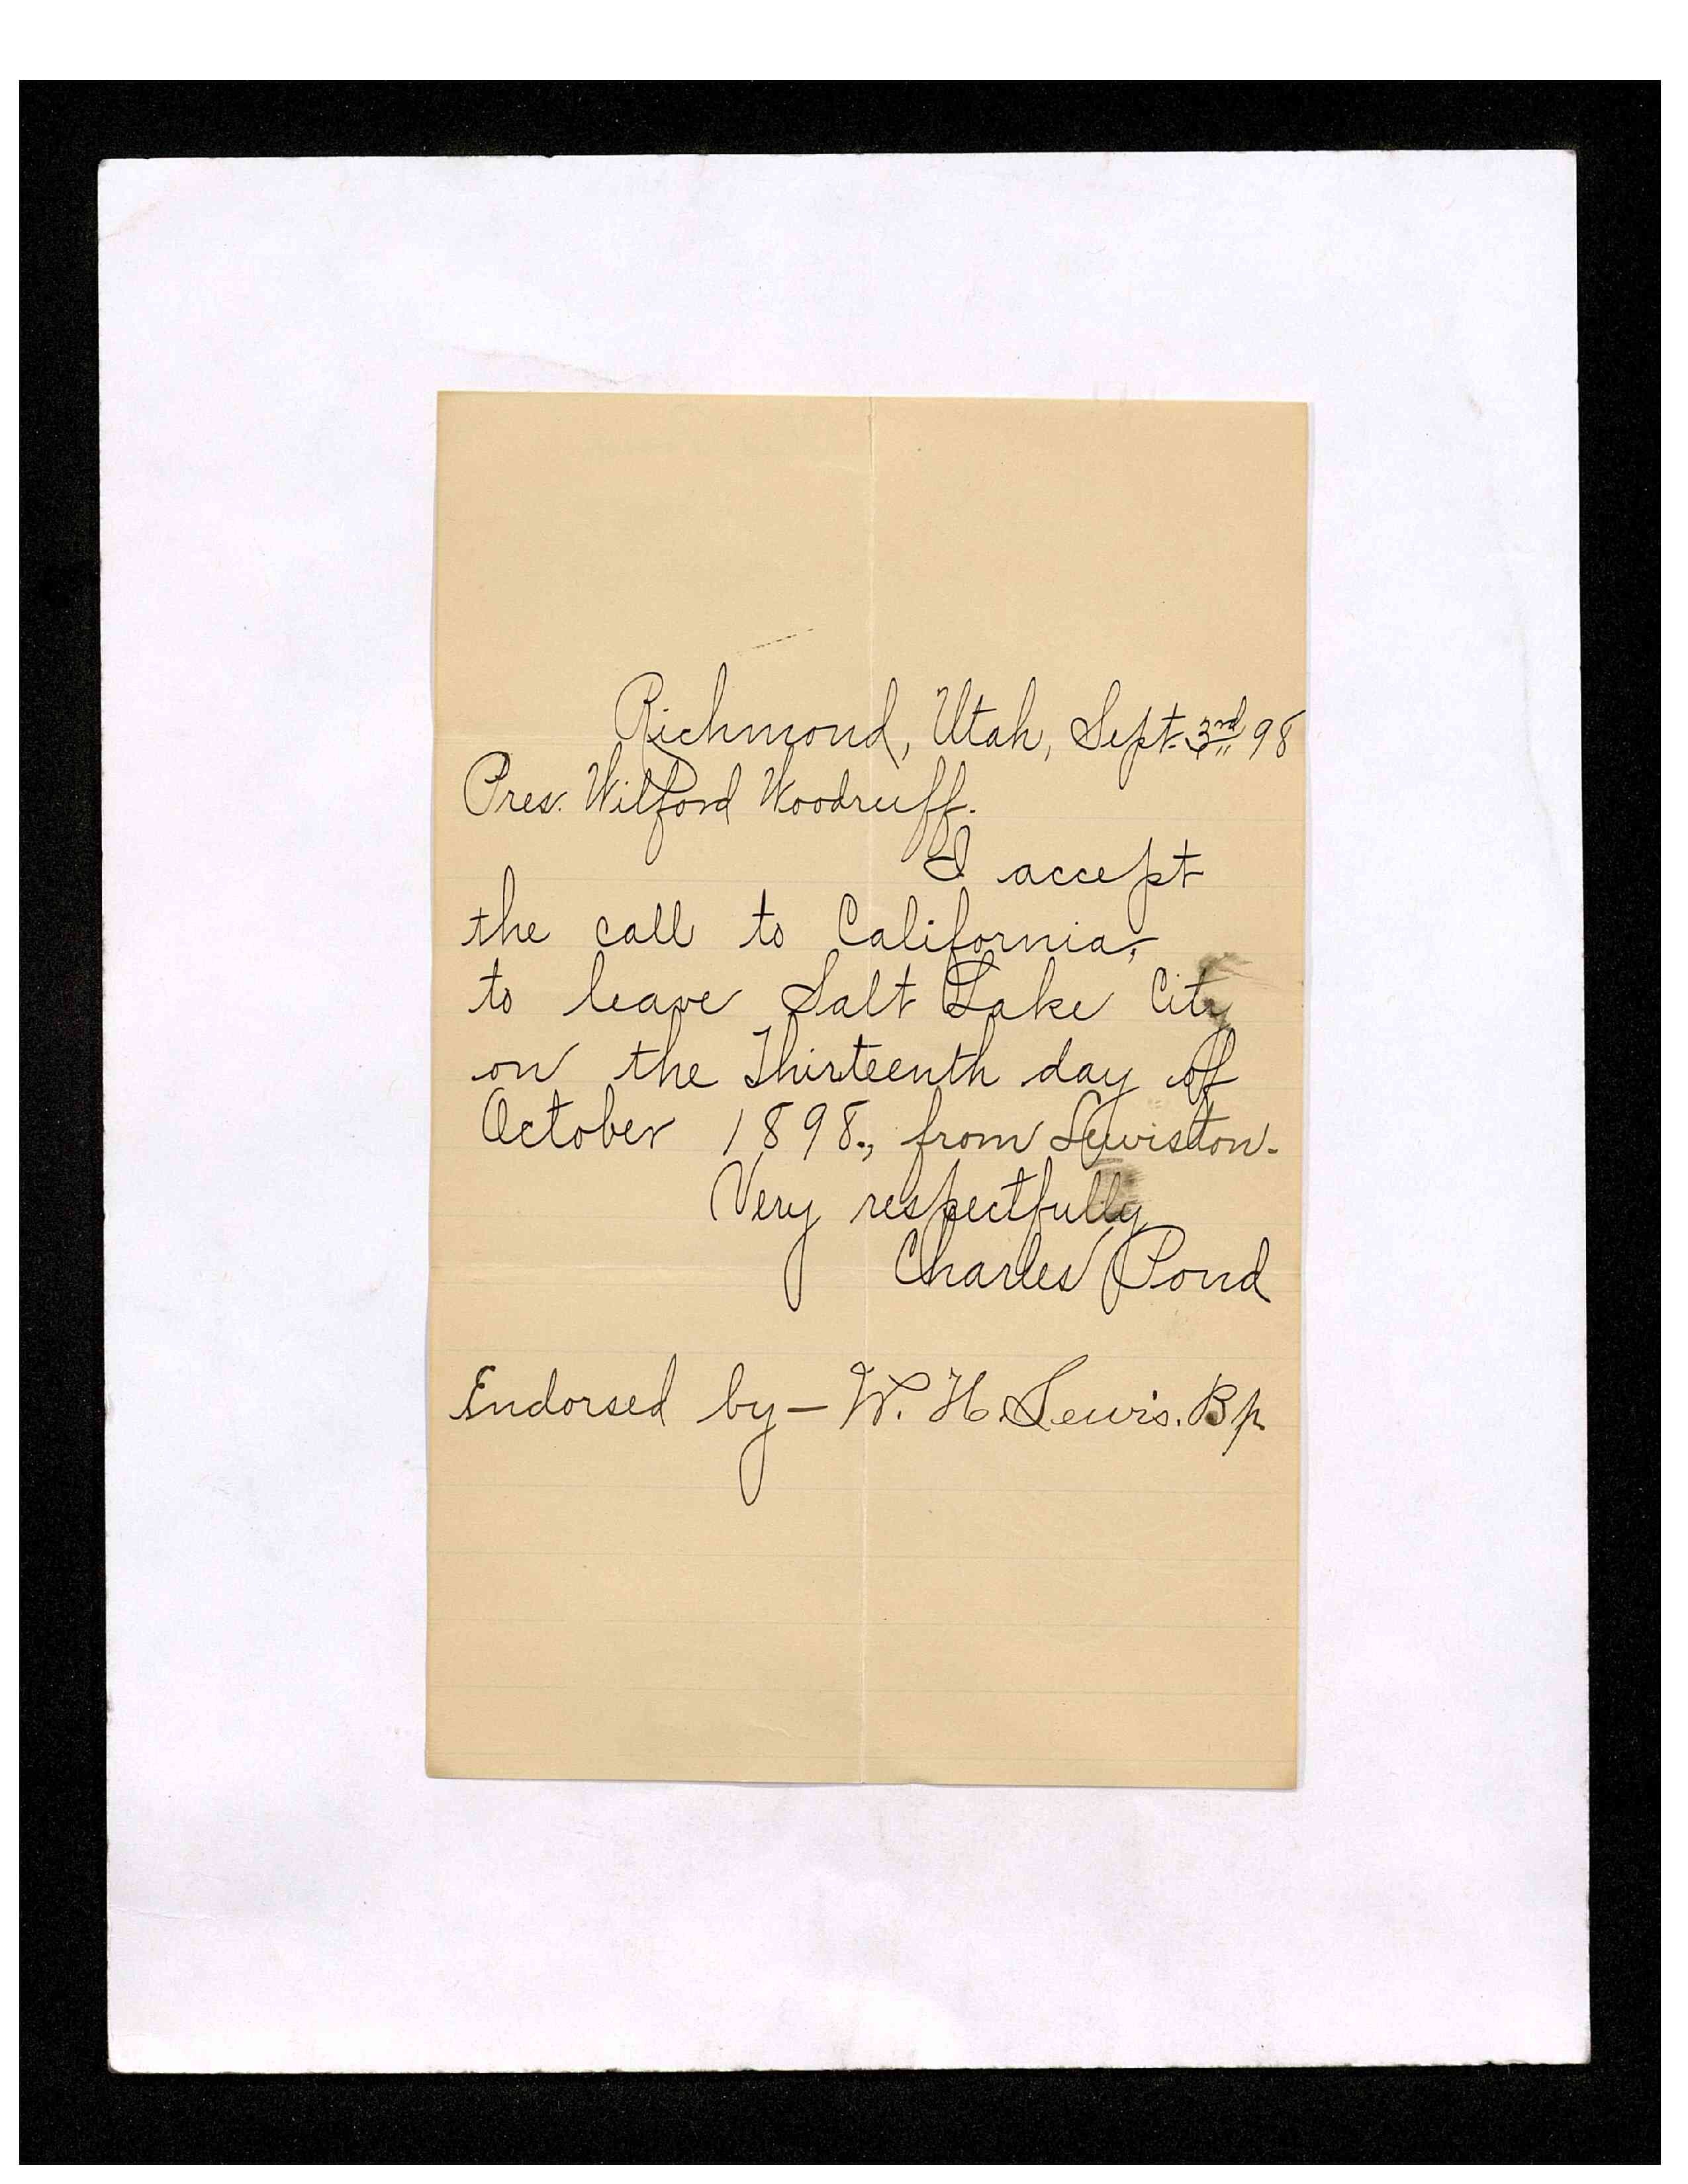 Richmond, Utah, Sept. 3rd 98
Pres. Wilford Woodruff.
I accept
the call to California,
to leave Salt Lake City
on the Thirteenth day of
October 1898., from Lewiston.
Very respectfully
Charles Pond
Endorsed by – W. H. Lewis. Bp